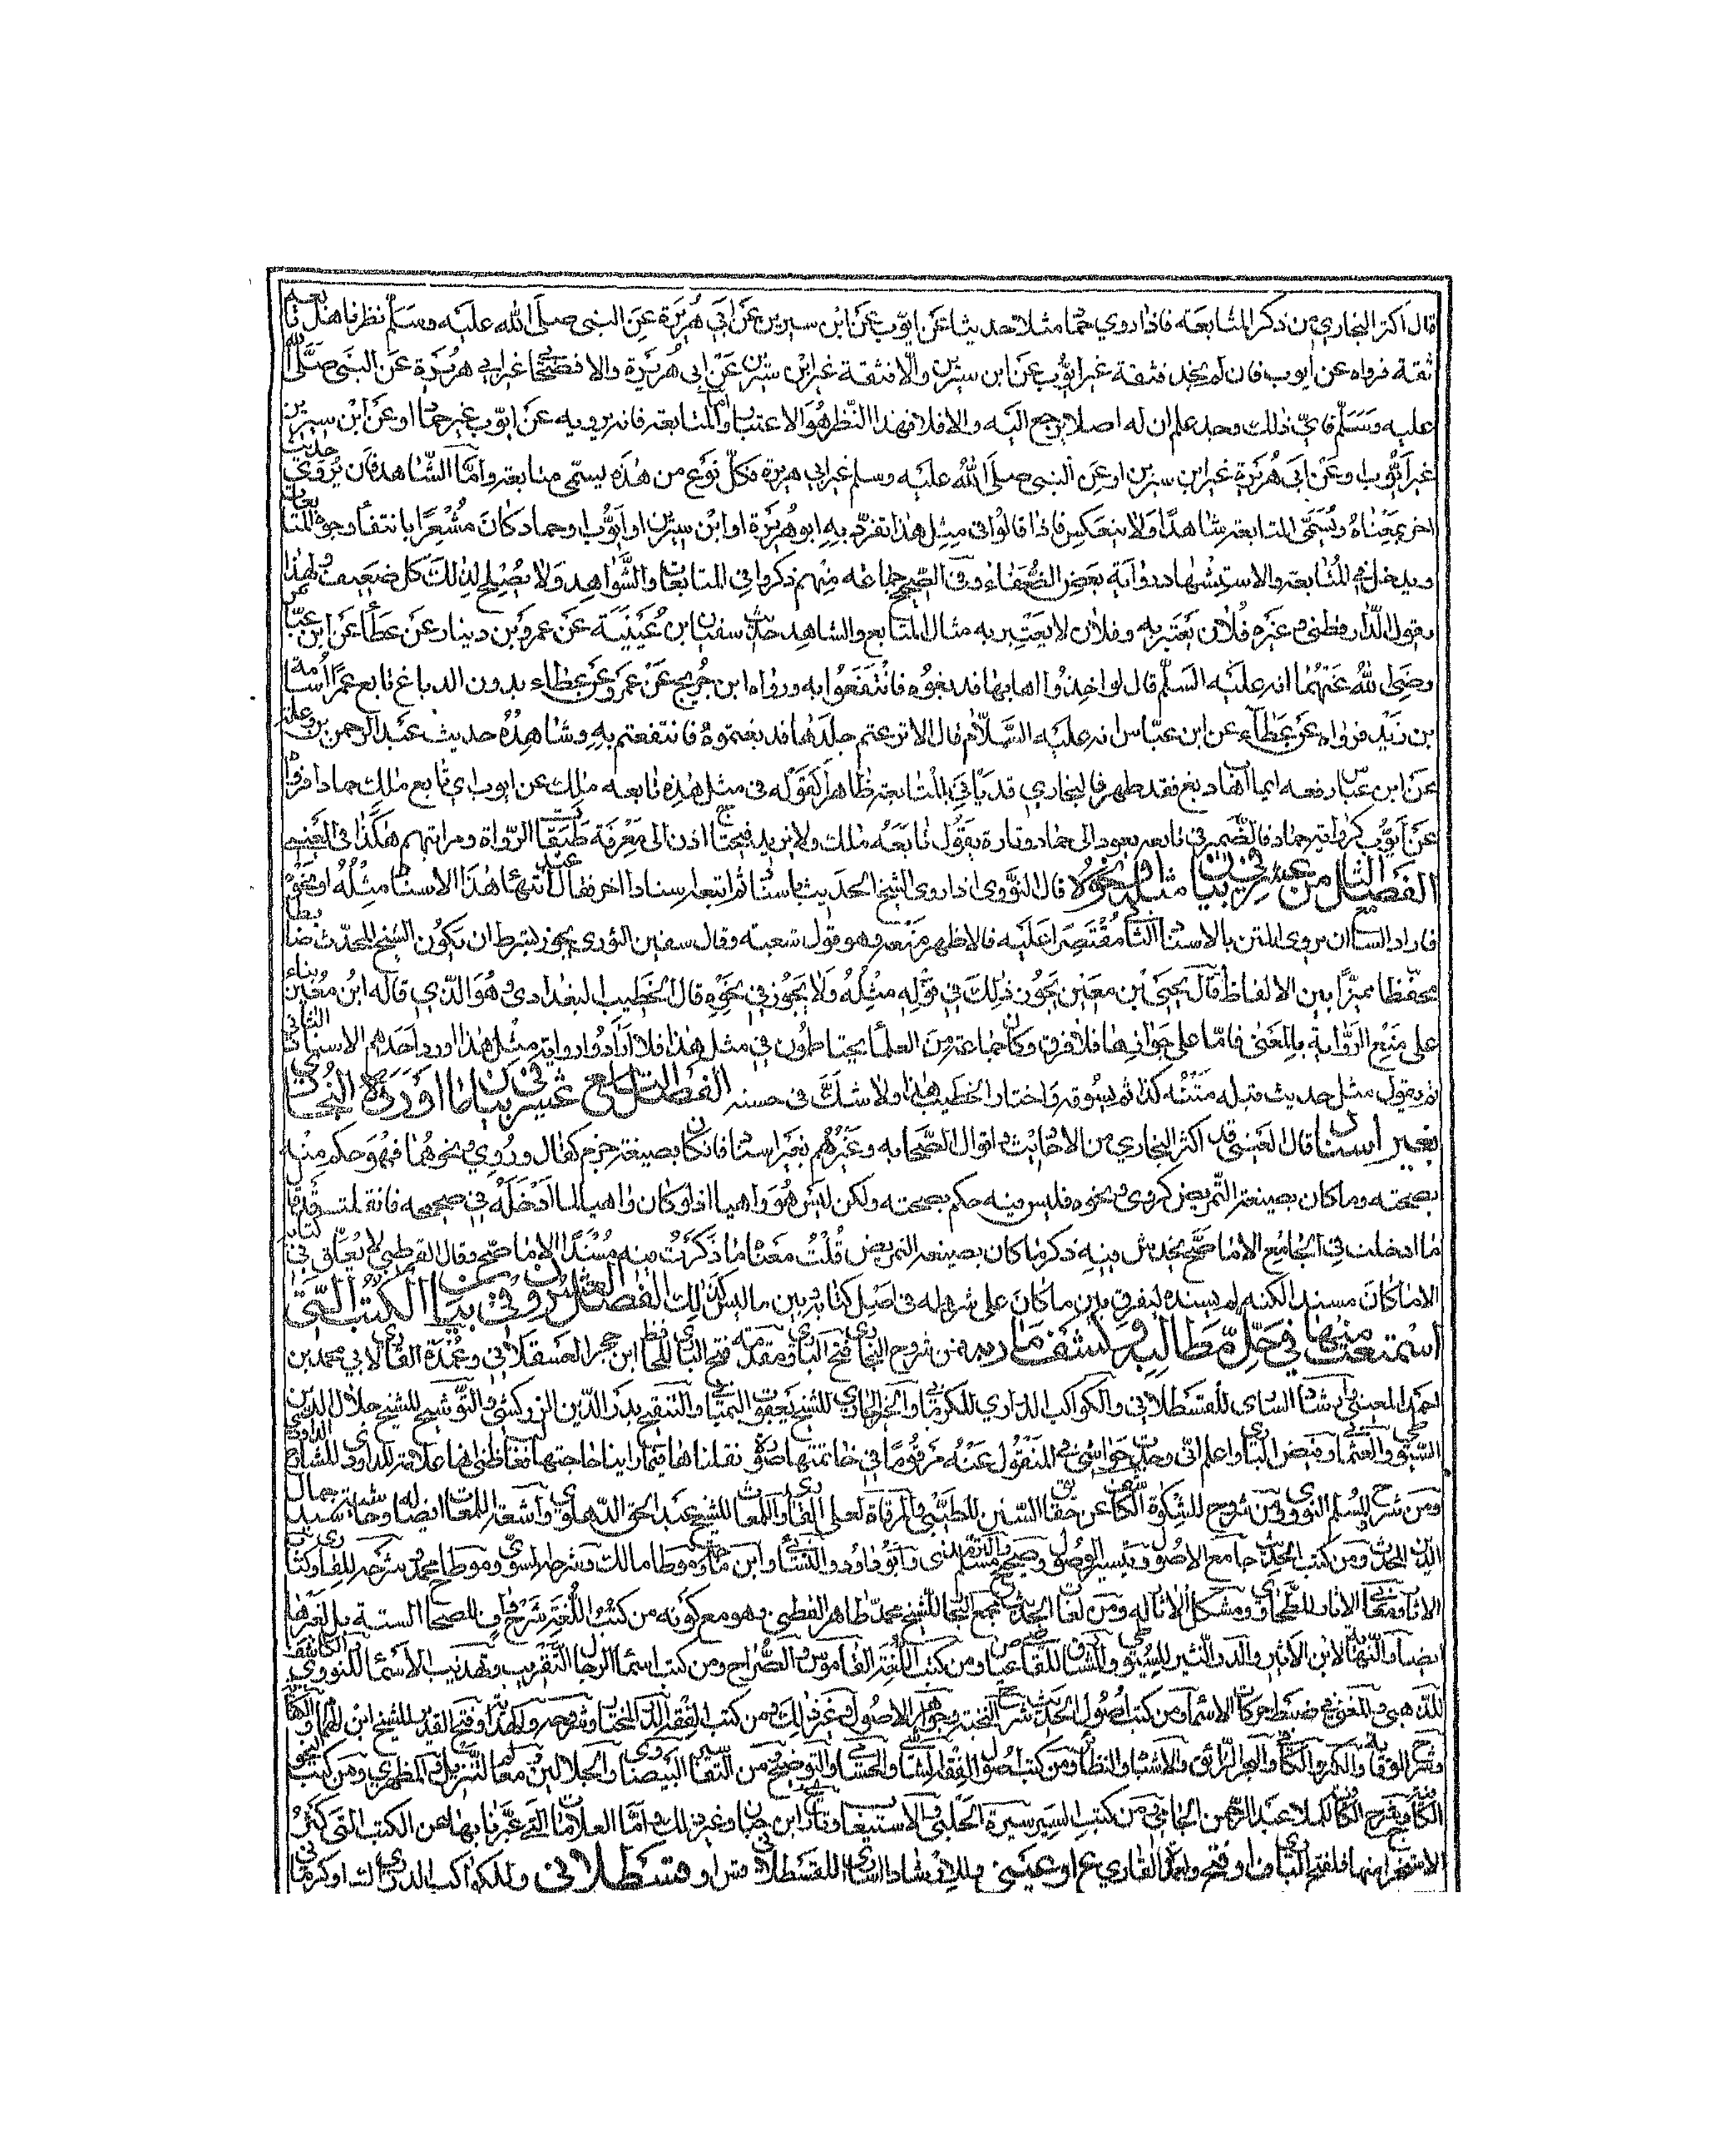 قال اكثر البخاري من ذكر المتابعة فاذا روي حماد مثلا حديثا عن ايوب عن ابن سيرين عن ابي هريرة عن النبي صلى الله عليه وسلم نظرنا هل تابعه
ثقة فرواه عن ايوب فان لم نجد فثقة غير ايوب عن ابن سيرين والا فثقة غير ابن سيرين عن ابي هريرة والا فصحابي غير ابي هريرة عن النبي صلى الله
عليه وسلم فاي ذلك وجد علم ان له اصلا يرجع اليه والا فلا فهذا النظر هو الاعتبار واما المتابعة فان يرويه عن ايوب غير حماد او عن ابن سيرين
غير ايوب او عن ابي هريرة غير ابن سيرين او عن النبي صلى الله عليه وسلم غير ابي هريرة فكل نوع من هذه يسمى متابعة واما الشاهد فان يروى حديث
اخر بمعناه وتسمى المتابعة شاهدا ولا ينعكس فاذا قالوا في مثل هذا تفرد به ابو هريرة او ابن سيرين او ايوب او حماد كان مشعرا بانتفاء وجوه المتابعات
ويدخل في المتابعة والاستشهاد رواية بعض الضعفاء وفي الصحيح جماعة منهم ذكروا في المتابعات والشواهد ولا يصلح لذلك كل ضعيف ولهذا
يقول الدارقطني وغيره فلان يعتبر به وفلان لا يعتبر به مثال المتابع والشاهد حديث سفيان بن عيينة عن عمرو بن دينار عن عطاء عن ابن عباس
رضي الله عنهما انه عليه السلام قال لو اخذوا اهابها فدبغوه فانتفعوا به ورواه ابن جريج عن عمرو عن عطاء بدون الدباغ تابع عمرا اسامة
بن زيد فرواه عن عطاء عن ابن عباس انه عليه السلام قال الا نزعتم جلدها فدبغتموه فانتفعتم به وشاهده حديث عبد الرحمن بن وعلة
عن ابن عباس رفعه ايما اهاب دبغ فقد طهر فالبخاري قد ياتي بالمتابعة ظاهرا كقوله في مثل هذه تابعه مالك عن ايوب اي تابع مالك حمادا فرواه
عن ايوب كرواية حماد فالضمير في تابعه يعود الى حماد وتارة يقول تابعه مالك ولا يزيد فيحتاج اذن الى معرفة طبقات الرواة ومراتبهم هكذا في العيني
الفصل الثامن عشر في بيان مثله ونحوه قال النووي اذا روى الشيخ الحديث باسناد ثم اتبعه اسنادا اخر فقال عند انتهاء هذا الاسناد مثله او نحوه
فاراد السامع ان يروى المتن بالاسناد الثاني مقتصرا عليه فالاظهر منعه وهو قول شعبة وقال سفين الثوري يجوز بشرط ان يكون الشيخ المحدث ضابطا
متحفظا مميزا بين الالفاظ قال يحيى ابن معين يجوز ذلك في قوله مثله ولا يجوز في نحوه قال الخطيب البغدادي وهو الذي قاله ابن معين بناء
على منع الرواية بالمعنى فاما على جوازها فلا فرق وكان جماعة من العلماء يحتاطون في مثل هذا فاذا ارادوا رواية مثل هذا اورد احدهم الاسناد الثاني
ثم يقول مثل حديث قبله متنه كذا ثم يسوقه واختار الخطيب هذا ولا شك في حسنه الفصل التاسع عشر في بيان ما اورده البخاري
بغير اسناد قال العيني قد اكثر البخاري من الاحاديث واقوال الصحابة وغيرهم بغير اسناد فان كان بصيغة جزم كقال وروي ونحوهما فهو حكم منه
بصحته وما كان بصيغة التمريض كروى ونحوه فليس فيه حكم بصحته ولكن ليس هو واهيا اذ لو كان واهيا لما ادخله في صحيحه فان قلت قد قال
ما ادخلت في الجامع الا ما صح يخدش فيه ذكر ما كان بصيغة التمريض قلت معناه ما ذكرت فيه مسندا الا ما صح وقال القرطبي لا يعلق في كتابه
الا ما كان مسندا لكنه لم يسنده ليفرق بين ما كان على شرطه في اصل كتابه وبين ما ليس كذلك الفصل العشرون في بيان الكتب التي
استمتعت منها في حل مطالبه وكشف مآربه من شروح البخاري فتح الباري ومقدمة فتح الباري للحافظ ابن حجر العسقلاني وعمدة القاري لابي محمد بن
احمد العيني وارشاد الساري للقسطلاني والكواكب الدراري للكرماني والخير الجاري للشيخ يعقوب البنباني والتنقيح لبدر الدين الزركشي والتوشيح للشيخ جلال الدين
السيوطي والعثماني وفيض الباري واعلم اني وجدت حواشي المنقول عنه مرقوما في خاتمتها نقلناها فيما راينا حاجتها علامة للداودي الشارح
ومن شرح المسلم النووي ومن شروح المشكوة الكاشف عن حقائق السنن للطيبي والمرقاة لعلي القاري واللمعات للشيخ عبد الحق الدهلوي واشعة اللمعات ايضا له وحاشية سيد جمال
الدين المحدث ومن كتب الحديث جامع الاصول وتيسير الوصول وصحيح مسلم والترمذي وابو داود والنسائي وابن ماجه وموطا مالك وشرحه للسيوطي وموطا محمد وشرحه للقاري وكتاب
الاثار ومعاني الاثار للطحاوي ومشكل الاثار له ومن لغات الحديث مجمع البحار للشيخ محمد طاهر الفطني وهو مع كونه من كتب اللغة شرح واف للصحاح الستة بل لغيرها
ايضا والنهاية لابن الاثير والدر النثير للسيوطي والمشارق للقاضي عياض ومن كتب اللغة القاموس والصراح ومن كتب اسماء الرجال التقريب وتهذيب الاسماء للنووي والكاشف
للذهبي والمغني في ضبط حركات الاسماء ومن كتب اصول الحديث شرح النخبة وجواهر الاصول وغير ذلك ومن كتب الفقه الدر المختار والهداية وفتح القدير للشيخ ابن الهمام والكفاية
وشرح الوقاية والبحر الرائق والاشباه والنظائر ومن كتب اصول الفقه الشاشي والحسامي والتوضيح من التفاسير البيضاوي والجلالين ومعالم التنزيل والمظهري ومن كتب النحو
الكافية وشرح الكافية لملا عبد الرحمن الجامي من كتب السير سيرة الحلبي والاستيعاب وثقات ابن حبان وغير ذلك واما العلامات التي عبرنا بها عن الكتب التي كثر
الاستخراج منها فلفتح الباري ف او فتح ولعمدة القاري ع او عيني ولارشاد الساري للقسطلاني قس او قسطلاني وللكواكب الدراري ك او كرماني